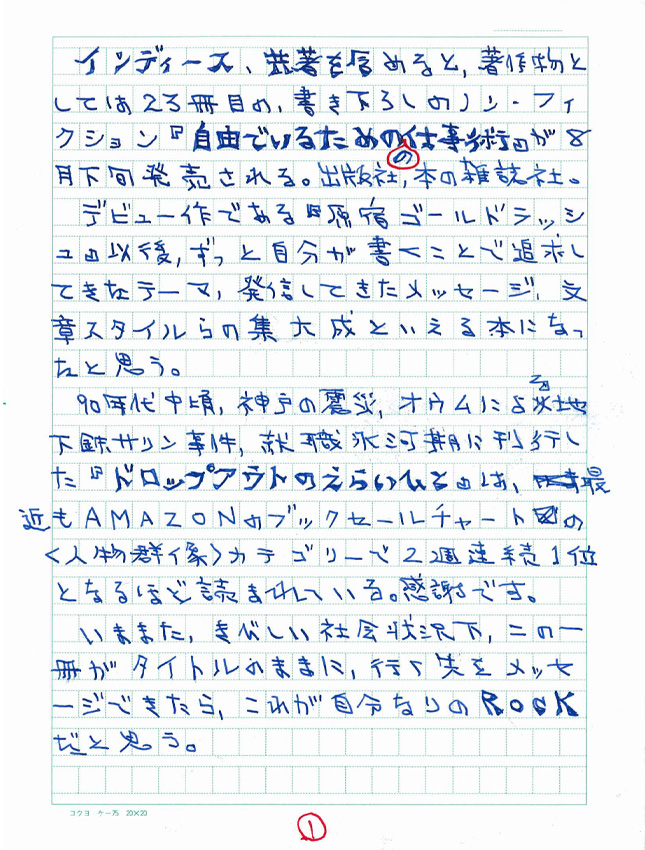 インディーズ、共著を含めると、著作物と
しては23冊目の、書き下ろしのノン・フィ
クション『自由でいるための仕事術』が8
の
月下旬発売される。出版社、本の雑誌社。
デビュー作である『原宿ゴールドラッシ
ュ』以後、ずっと自分が書くことで追求し
てきたテーマ、発信してきたメッセージ、文
章スタイルらの集大成といえる本になっ
たと思う。
90年代中頃、神戸の震災、オウムによる地
下鉄サリン事件、就職氷河期に刊行し
た『ドロップアウトのえらいひと』は、最
近もAMAZONのブックセールチャートの
〈人物群像〉カテゴリーで2週連続1位
となるほど読まれている。感謝です。
いままた、きびしい社会状況下、この一
冊がタイトルのままに、行く先をメッセ
ージできたら、これが自分なりのRocK
だと思う。
コクヨ ケー75 20×20
1